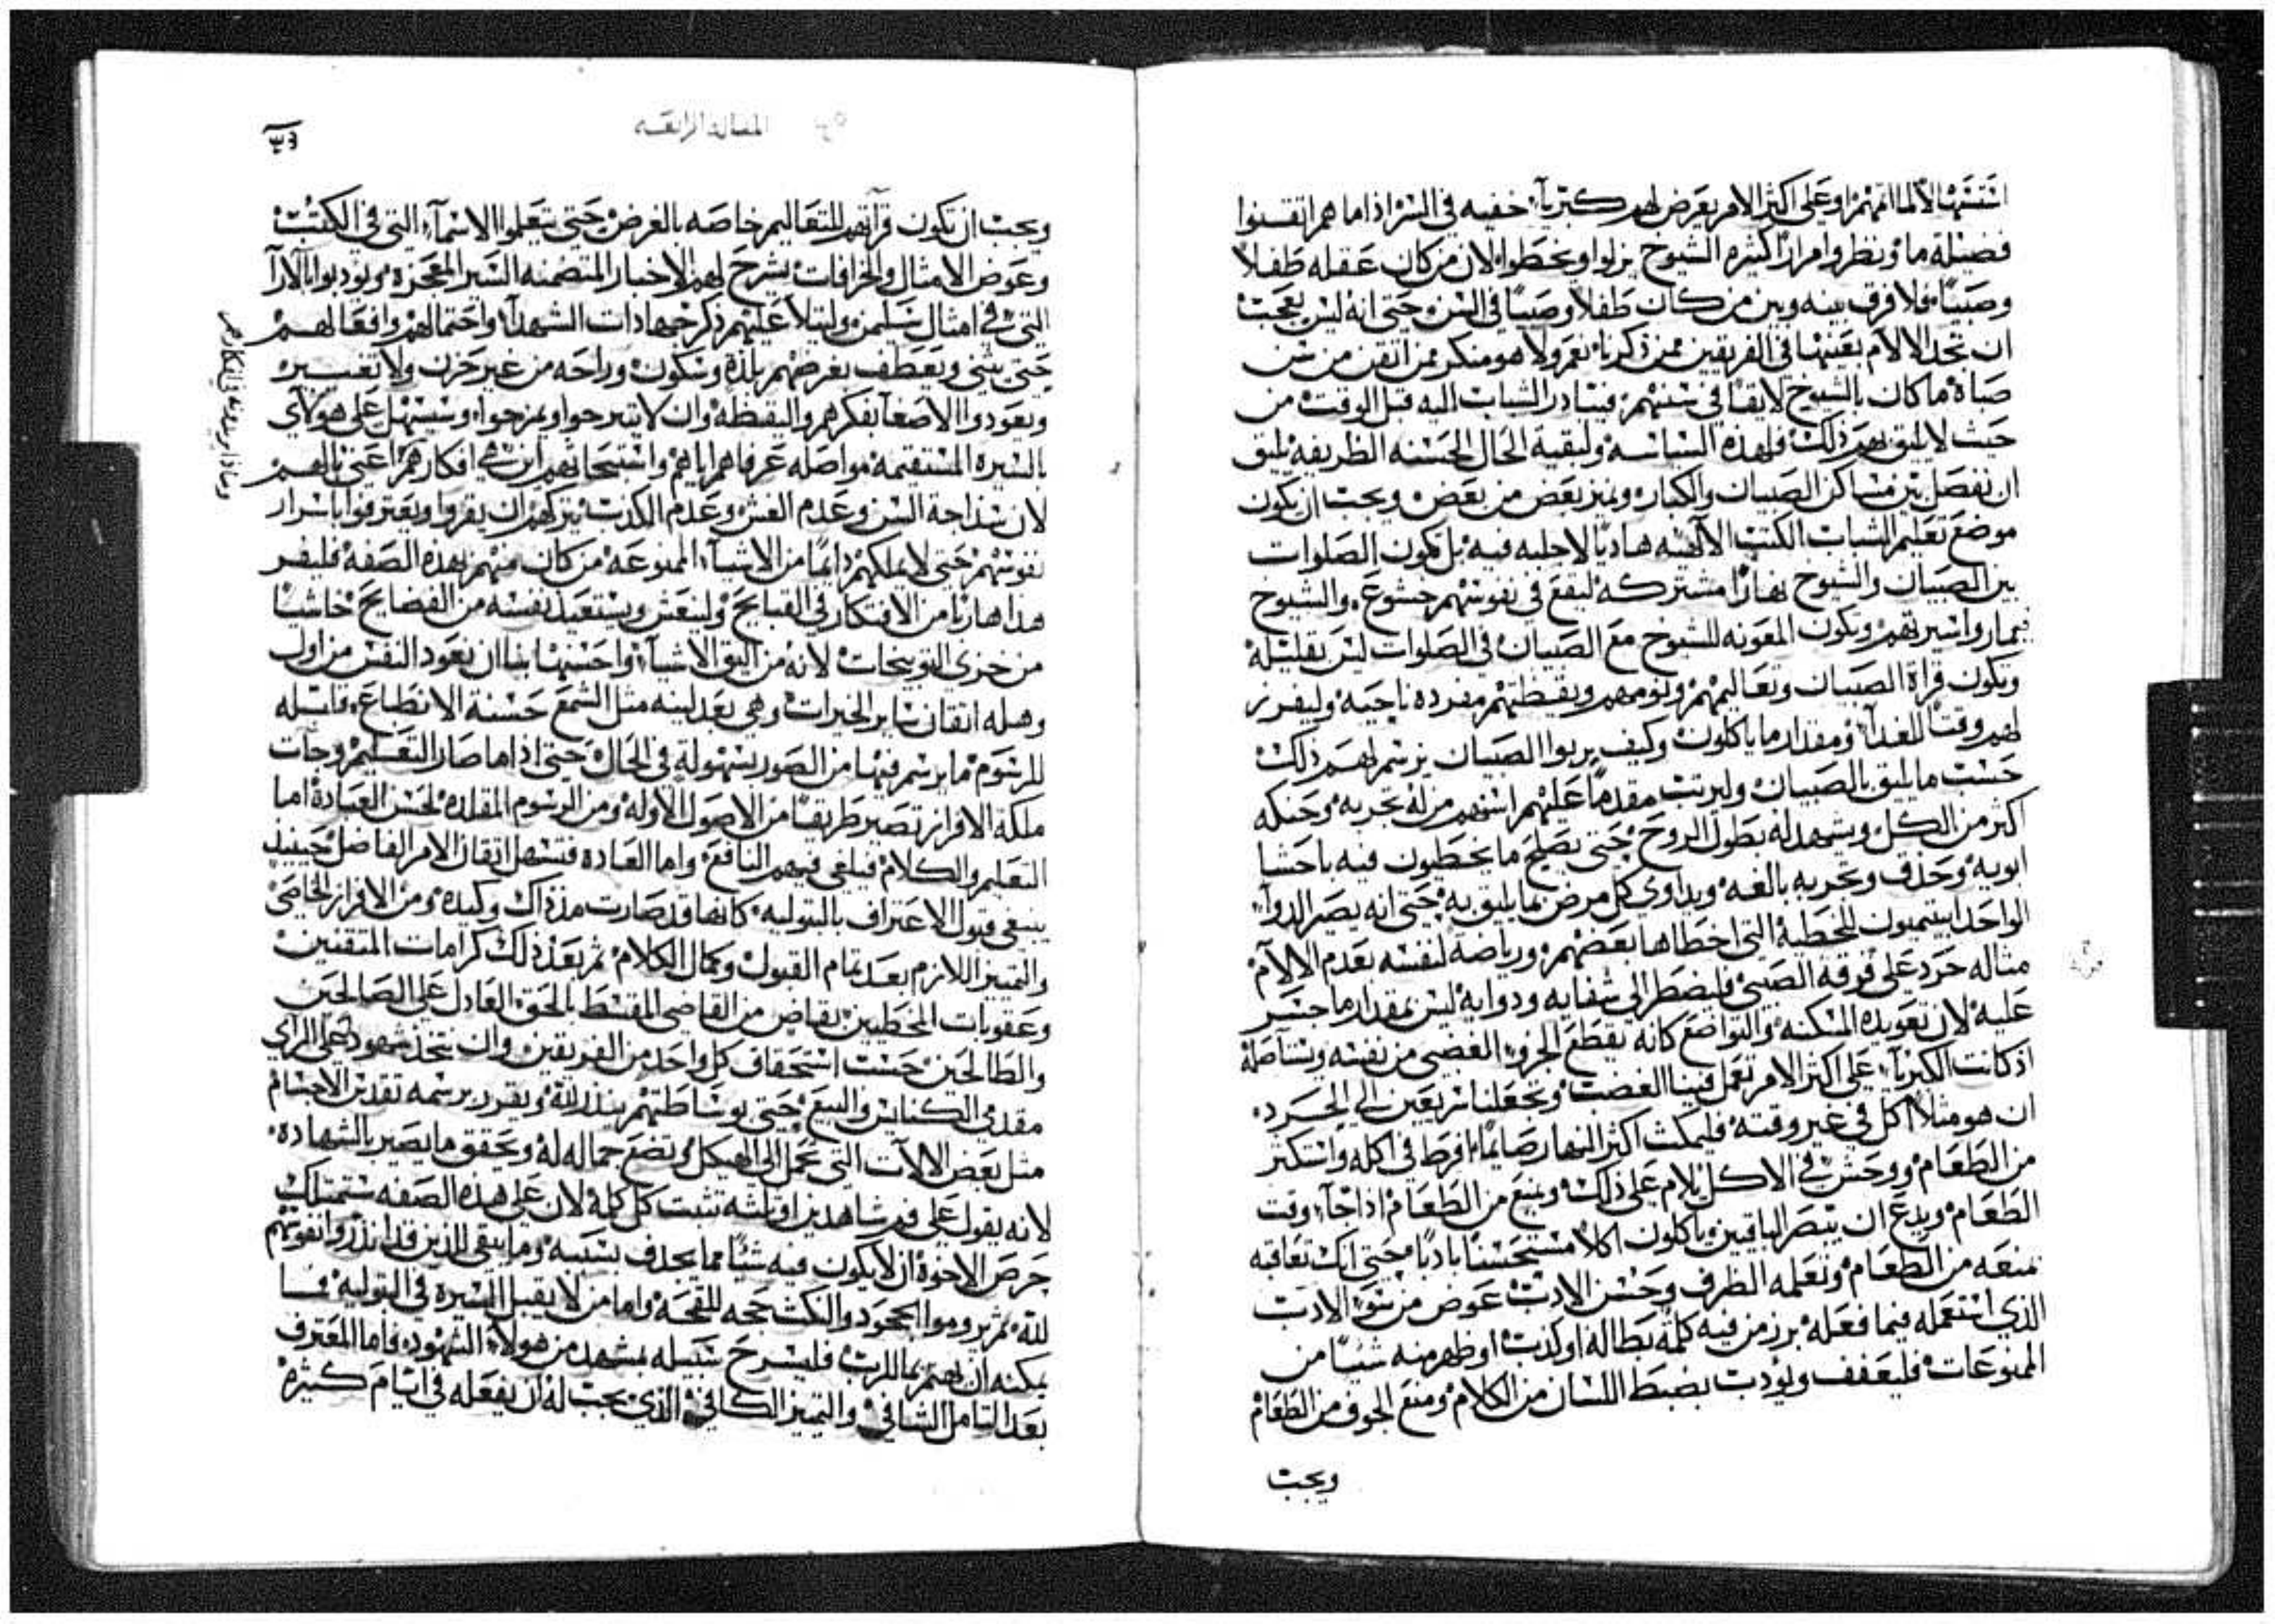 اذا ما هم اتقنوا
فضيلة ما ونظروا مرارًا كثيره الشيوخ يزلوا ويخطوا لان من كان عقله طفلًا
وصبيًا فلا فرق بينه وبين من كان طفلًا وصبيًا في السن حتى انه ليس بعجب
ان تجد الالام بعينها في الفريقين ممن ذكرناه نعم ولا هو منكر ممن اتقن من سن
صباه ما كان بالشيوخ لايقًا في سنهم فيتبادر الشباب اليه قبل الوقت من
حيث لا يليق بهم ذلك ولهذه السياسه ولبقية الحال الحسنه الظريفه يليق
ان نفصل بين مساكن الصبيان والكبار ونميز بعض من بعض ويجب ان يكون
موضع تعليم الشباب الكتب الالهيه هاديًا لا جلبه فيه بل تكون الصلوات
بين الصبيان والشيوخ نهارًا مشتركه ليقع في نفوسهم خشوع والشيوخ
وتكون المعونه للشيوخ مع الصبيان في الصلوات ليس بقليله
وتكون قراة الصبيان وتعاليمهم ونومهم ويقظتهم مفرده ناحية وليفرز
لهم وقت للغدا ومقدار ما ياكلون وكيف يربوا الصبيان يرسم لهم ذلك
حسب ما يليق بالصبيان وليرتب مقدمًا عليهم اسنهم من له تجربه وحنكه
اكثر من الكل ويشهد له بطول الروح حتى يصلح ما يخطيون فيه باحشا
ابويه وحذق وتجربه بالغه ويداوي كل مرض بما يليق به حتى انه يصير الدوا
الواحد للخطية التي اخطاها بعضهم ورياضه لنفسه بعدم الالام
مثاله حرد على فرقه الصبي فليضطر الى شفايه ودوايه ليس بمقدار ما جسر
عليه لان تعويده المسكنه والتواضع كانه يقطع الجزو الغضبي من نفسه ويستاصله
اذ كانت الكبريا على اكثر الامر تعمل فينا الغضب وتجعلنا سريعين الى الحرد
ان هو مثلًا اكل في غير وقته فليمكث اكثر النهار صايمًا افرط في اكله واستكثر
من الطعام ووحش في الاكل يلام على ذلك ويمنع من الطعام اذا جا وقت
الطعام ويدع ان يبصر الباقين ياكلون اكلًا مستحسنًا بادبًا حتى انك تعاقبه
تمنعه من الطعام وتعلمه الظرف وحسن الادب عوض من سو الادب
الذي استعمله فيما فعله برز من فيه كلمة بطاله او كذب او ظهر منه شيًا من
الممنوعات فليعفف ويودب بضبط اللسان من الكلام ومنع الجوف من الطعام
ويجب
المقاله الرابعه
ويجب ان تكون قرآتهم للتعاليم خاصه بالغرض حتى يتعلموا الاسمآ التي في الكتب
وعوض الامثال والخرافات يشرح لهم الاخبار المتضمنه السير المعجزه ويودبوا بالارآ
التي في امثال سليمن وليتلا عليهم ذكر جهادات الشهدآ واحتمالهم وافعالهم
حتى يثني ويعطف بغرضهم بلذة وسكون وراحه من غير حزن ولا تعسير
ويعودوا الاصغا بفكرهم واليقظه وان لا يتبرحوا ويمزحوا وسيسهل على هولاي
بالسيرة المستقيمه مواصله عرفاهم اياهم اين هي افكارهم اعني بالهم
لان سذاجة السن وعدم الغش وعدم الكذب يتركهم ان يقروا ويعترفوا باسرار
نفوسهم حتى لا يملكهم دايمًا من الاشيآ الممنوعه من كان منهم بهذه الصفه فليفر
هذا هاربًا من الافتكار في القبايح ولينعش ويستعيد نفسه من الفضايح خاشيًا
من خزي التوبيخات لانه من اليق الاشيآ واحسنها بنا ان نعود النفس من اول
وهله اتقان ساير الخيرات وهي بعد لينه مثل الشمع حسنة الانطباع قابله
للرسوم ما يرسم فيها من الصور بسهولة في الحال حتى اذا ما صار التعليم وجات
ملكة الافراز تصير طريقًا من الاصول الاوله ومن الرسوم المقلده لحسن العباده اما
التعليم والكلام فيلقي فيهم النافع واما العاده فتسهل اتقان الامر الفاضل حينيذ
ينبغي قبول الاعتراف بالبتوليه كانها قد صارت مذ ذاك وكيده ومن الافراز الخاصي
والتمييز اللازم بعد تمام القبول وكمال الكلام ثم بعد ذلك كرامات المتقنين
وعقوبات المخطيين بقاض من القاضي المقسط بالحق العادل على الصالحين
والطالحين حسب استحقاق كل واحد من الفريقين وان يتخذ شهود على الراي
مقدمي الكنايس والبيع حتى بوساطتهم ينذر لله ويقرر برسمه تقديس الاجسام
مثل بعض الالات التي تحمل الى الهيكل وتضع حماله له وتحقق ما يصير بالشهاده
لانه يقول على فم شاهدين او ثلثه تثبت كل كلمة لان على هذه الصفه ستمتلك
حرص الاخوة ان لا يكون فيه شيًا مما يجدف بسببه وما يبقى للذين قد انذروا نفوسهم
لله ثم يروموا الجحود والنكث حجه للقحه واما من لا يقبل السيرة في البتوليه فما
يمكنه ان يهتم بما للرب فليسرح سبيله بمشهد من هولاء الشهود فاما المعترف
بعد التامل الشافي والتمييز الكافي الذي يجب له ان يفعله في ايام كثيرة